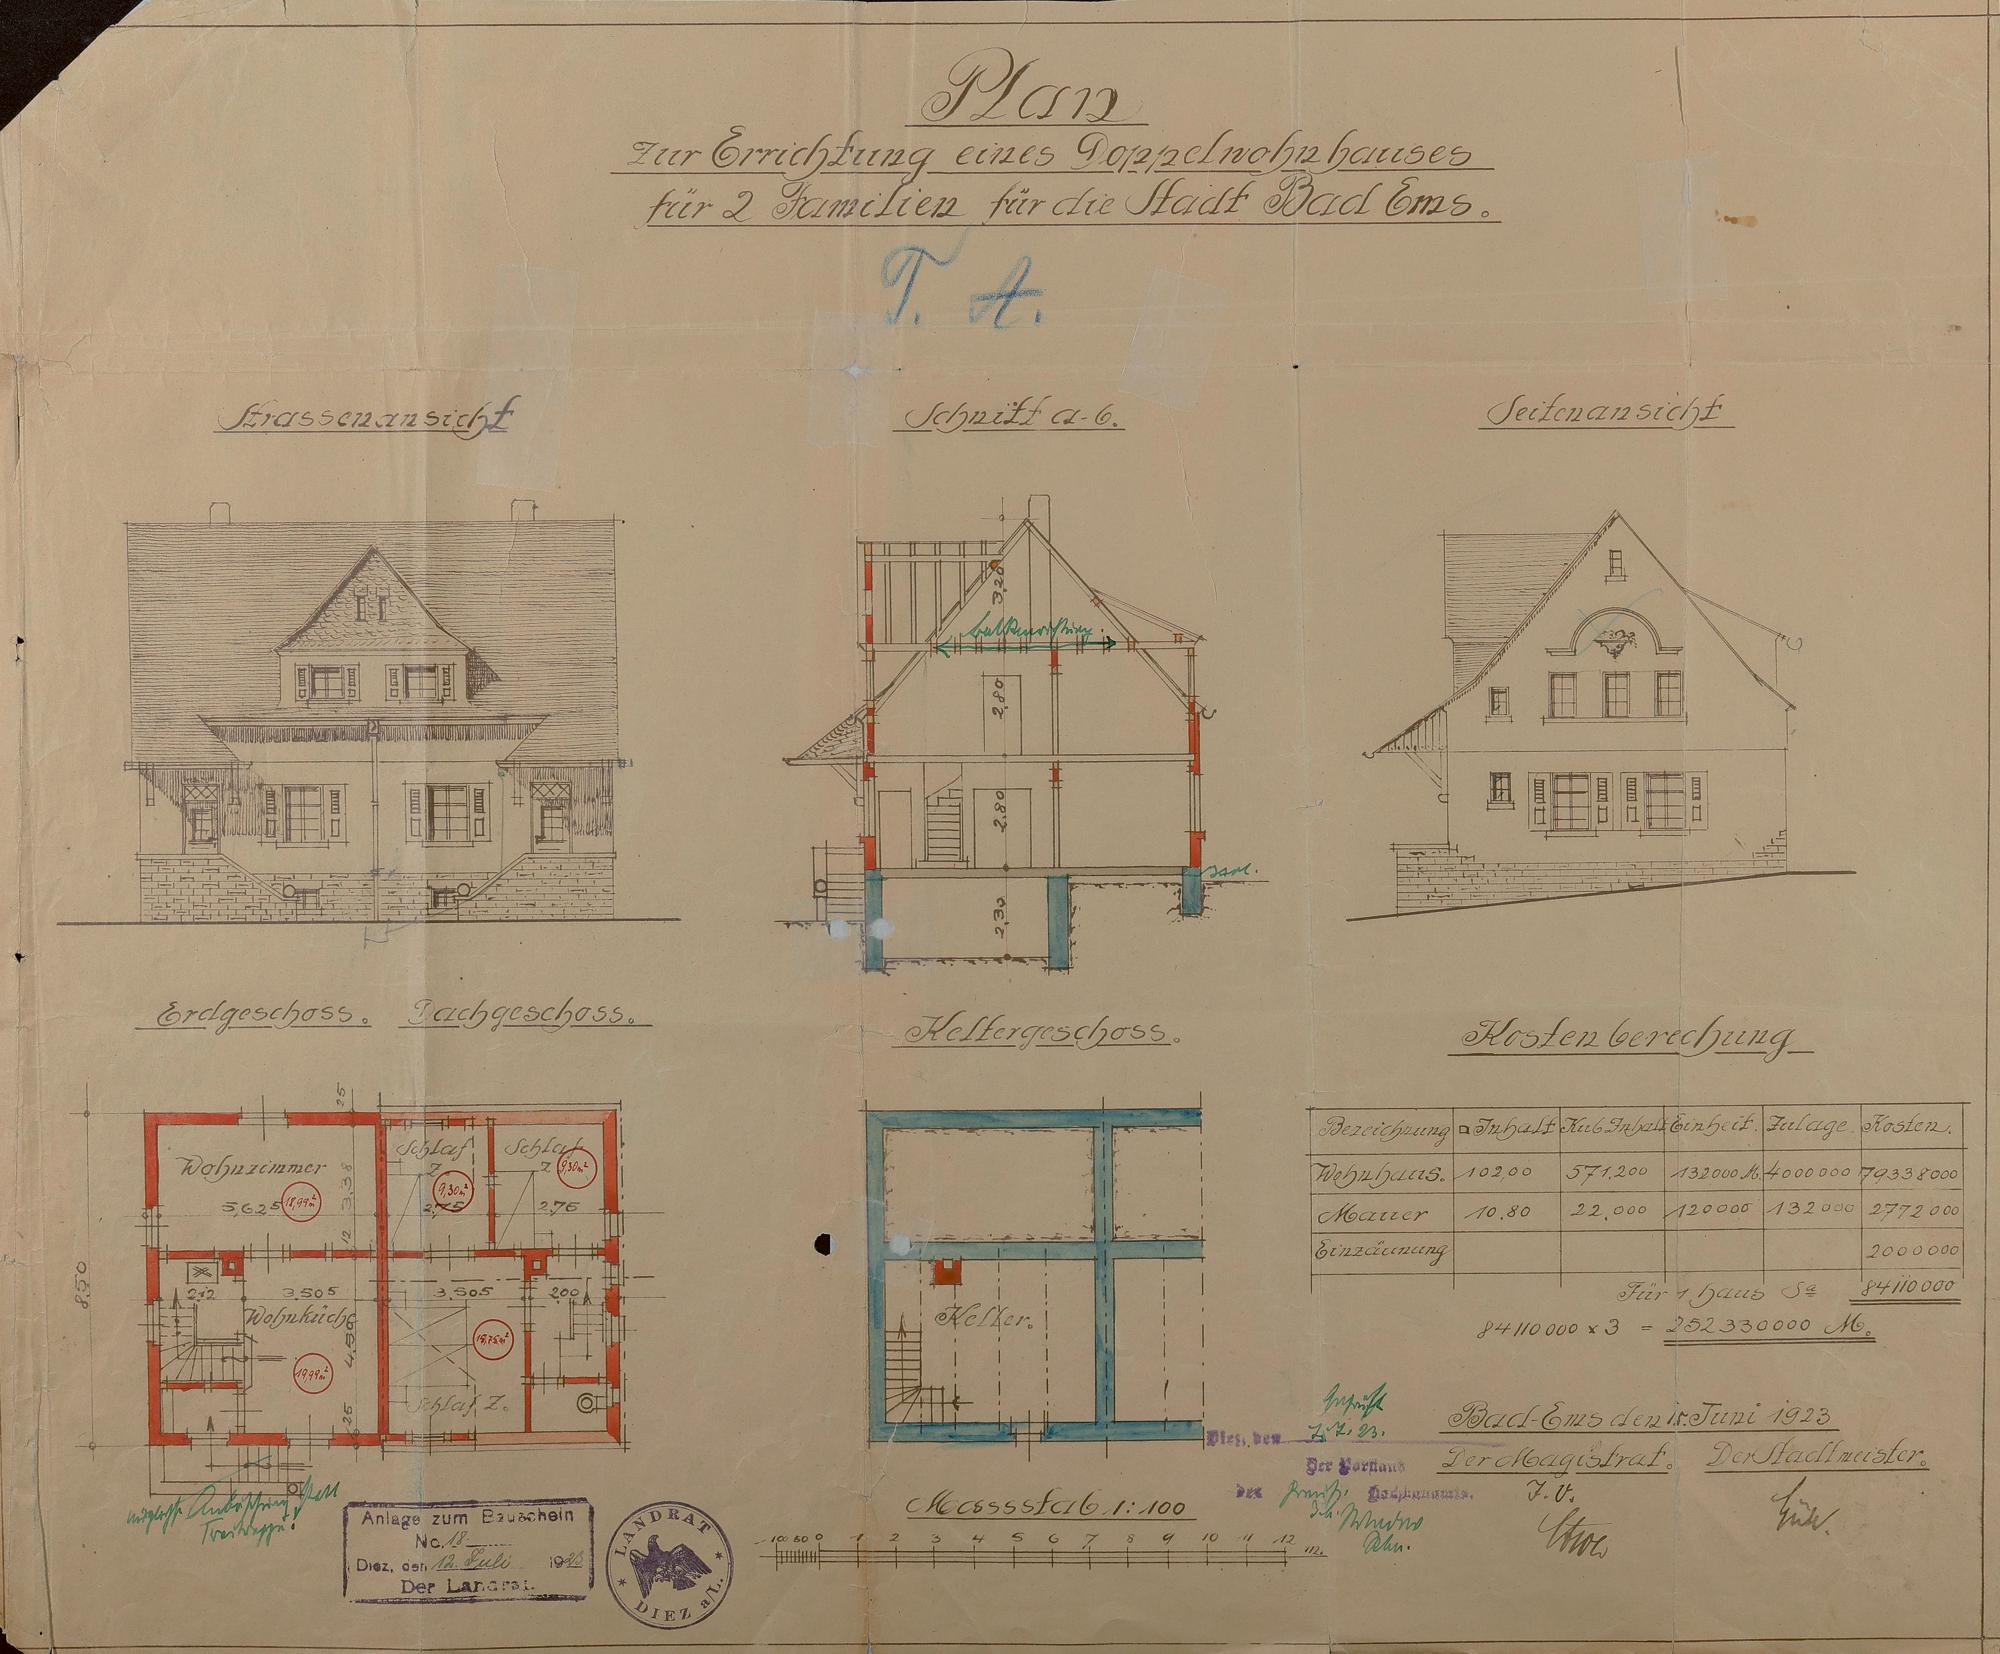 Plan
zur Errichtung eines Doppelwohnhauses
für 2 Familien für die Stadt Bad Ems.
T. A.
Strassenansicht
Schnitt a-b.
Seitenansicht
3,20
2,80
2,80
2,30
Erdgeschoss. Dachgeschoss.
Kellergeschoss.
Kostenberechung
25
Wohnzimmer
5,625
18,99 m²
3,38
12
Schlaf
Z.
9,30 m²
2,75
Schlaf
Z.
9,30 m²
2,75
8,50
212
3,505
Wohnküche
4,50
19,99 m²
25
3,505
200
Schlaf Z.
Keller.
Bezeichnung □Inhalt Kub.Inhalt Einheit. Zulage Kosten.
Wohnhaus. 102,00 571,200 132000 M. 4000000 79338000
Mauer 10.80 22,000 120000 132000 2772000
Einzäunung 2000000
Für 1 haus Sa 84110000
84110000 x 3 = 252330000 M.
Bad-Ems den 15. Juni 1923
Der Magistrat. Der Stadtmeister.
J. V.
Geprüft
Diez, den 7.7.23.
Der Vorstand
des Preuß. Hochbauamts.
Maassstab 1:100
100 50 0 1 2 3 4 5 6 7 8 9 10 11 12 m.
Anlage zum Bauschein
No. 18
Diez, den 12. Juli 1923
Der Landrat.
LANDRAT
DIEZ a/L.